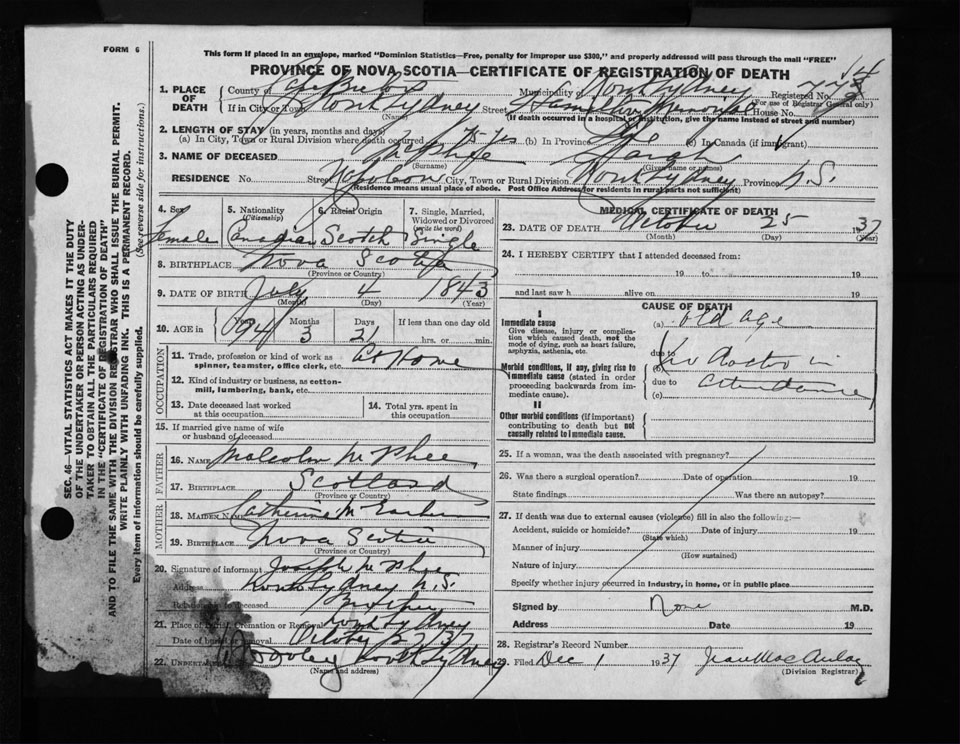 FORM 6
This form if placed in an envelope, marked "Dominion Statistics—Free, penalty for improper use $300," and properly addressed will pass through the mail "FREE"
PROVINCE OF NOVA SCOTIA—CERTIFICATE OF REGISTRATION OF DEATH
1. PLACE OF DEATH
County of Cape Breton Municipality of North Sydney Registered No.
(For use of Registrar General only)
If in City or Town North Sydney Street Hamilton Memorial House No.
(Name)
(If death occurred in a hospital or institution, give the name instead of street and number)
2. LENGTH OF STAY (in years, months and days)
(a) In City, Town or Rural Division where death occurred 75 yrs (b) In Province Life (c) In Canada (if immigrant)
3. NAME OF DECEASED McPhee Sarah
(Surname) (Given name or names)
RESIDENCE No. Street Napoleon City, Town or Rural Division North Sydney Province N.S.
(Residence means usual place of abode. Post Office Address for residents in rural parts not sufficient)
4. Sex Female
5. Nationality (Citizenship) Canadian
6. Racial Origin Scotch
7. Single, Married, Widowed or Divorced (write the word) Single
8. BIRTHPLACE Nova Scotia
(Province or Country)
9. DATE OF BIRTH July 4 1843
(Month) (Day) (Year)
10. AGE in Years Months Days If less than one day old
94 3 21 hrs. or min.
OCCUPATION
11. Trade, profession or kind of work as spinner, teamster, office clerk, etc. At Home
12. Kind of industry or business, as cotton-mill, lumbering, bank, etc.
13. Date deceased last worked at this occupation
14. Total yrs. spent in this occupation
15. If married give name of wife or husband of deceased
FATHER
16. NAME Malcolm McPhee
17. BIRTHPLACE Scotland
(Province or Country)
MOTHER
18. MAIDEN NAME Catherine
19. BIRTHPLACE Nova Scotia
(Province or Country)
20. Signature of informant Joseph McPhee
Address North Sydney N.S.
Relationship to deceased Brother
21. Place of Burial, Cremation or Removal North Sydney
Date of burial or removal October 27 37
22. UNDERTAKER Dooley North Sydney
(Name and address)
MEDICAL CERTIFICATE OF DEATH
23. DATE OF DEATH October 25 1937
(Month) (Day) (Year)
24. I HEREBY CERTIFY that I attended deceased from:
19 to 19
and last saw h alive on 19
CAUSE OF DEATH
I
Immediate cause
Give disease, injury or complication which caused death, not the mode of dying, such as heart failure, asphyxia, asthenia, etc.
(a) old age
due to
(b) No doctor in
Morbid conditions, if any, giving rise to immediate cause (stated in order proceeding backwards from immediate cause).
due to attendance
(c)
II
Other morbid conditions (if important) contributing to death but not causally related to immediate cause.
25. If a woman, was the death associated with pregnancy?
26. Was there a surgical operation? Date of operation 19
State findings Was there an autopsy?
27. If death was due to external causes (violence) fill in also the following:—
Accident, suicide or homicide? Date of injury 19
(State which)
Manner of injury
(How sustained)
Nature of injury
Specify whether injury occurred in industry, in home, or in public place
Signed by None M.D.
Address Date 19
28. Registrar's Record Number
29. Filed Dec 1 1937 Jean MacAulay
(Division Registrar)
SEC. 46—VITAL STATISTICS ACT MAKES IT THE DUTY
OF THE UNDERTAKER OR PERSON ACTING AS UNDER-
TAKER TO OBTAIN ALL THE PARTICULARS REQUIRED
IN THE "CERTIFICATE OF REGISTRATION OF DEATH"
AND TO FILE THE SAME WITH THE DIVISION REGISTRAR WHO SHALL ISSUE THE BURIAL PERMIT.
WRITE PLAINLY WITH UNFADING INK. THIS IS A PERMANENT RECORD.
Every item of information should be carefully supplied. (See reverse side for instructions.)